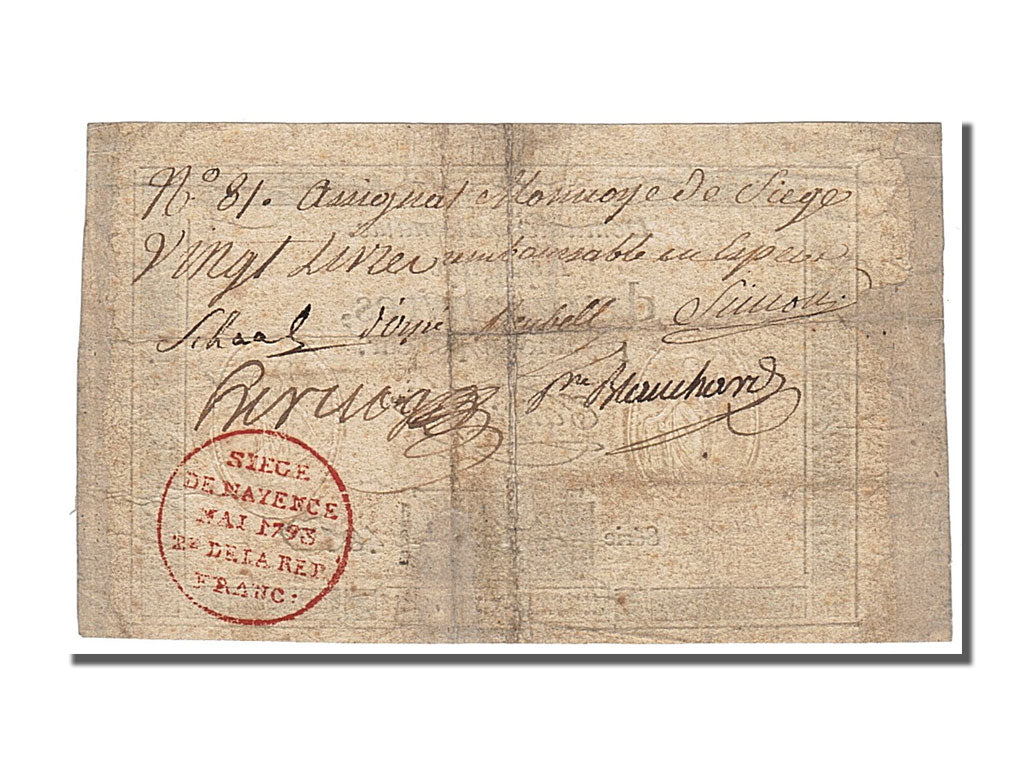 N.° 81. assignat Monnoye de Siege
Vingt Livres remboursable en especes
Schaal d'oyré Reubell Simon
Pre Blanchard
SIEGE
DE MAYENCE
MAI 1793
2e DE LA REP
FRANC:
Série